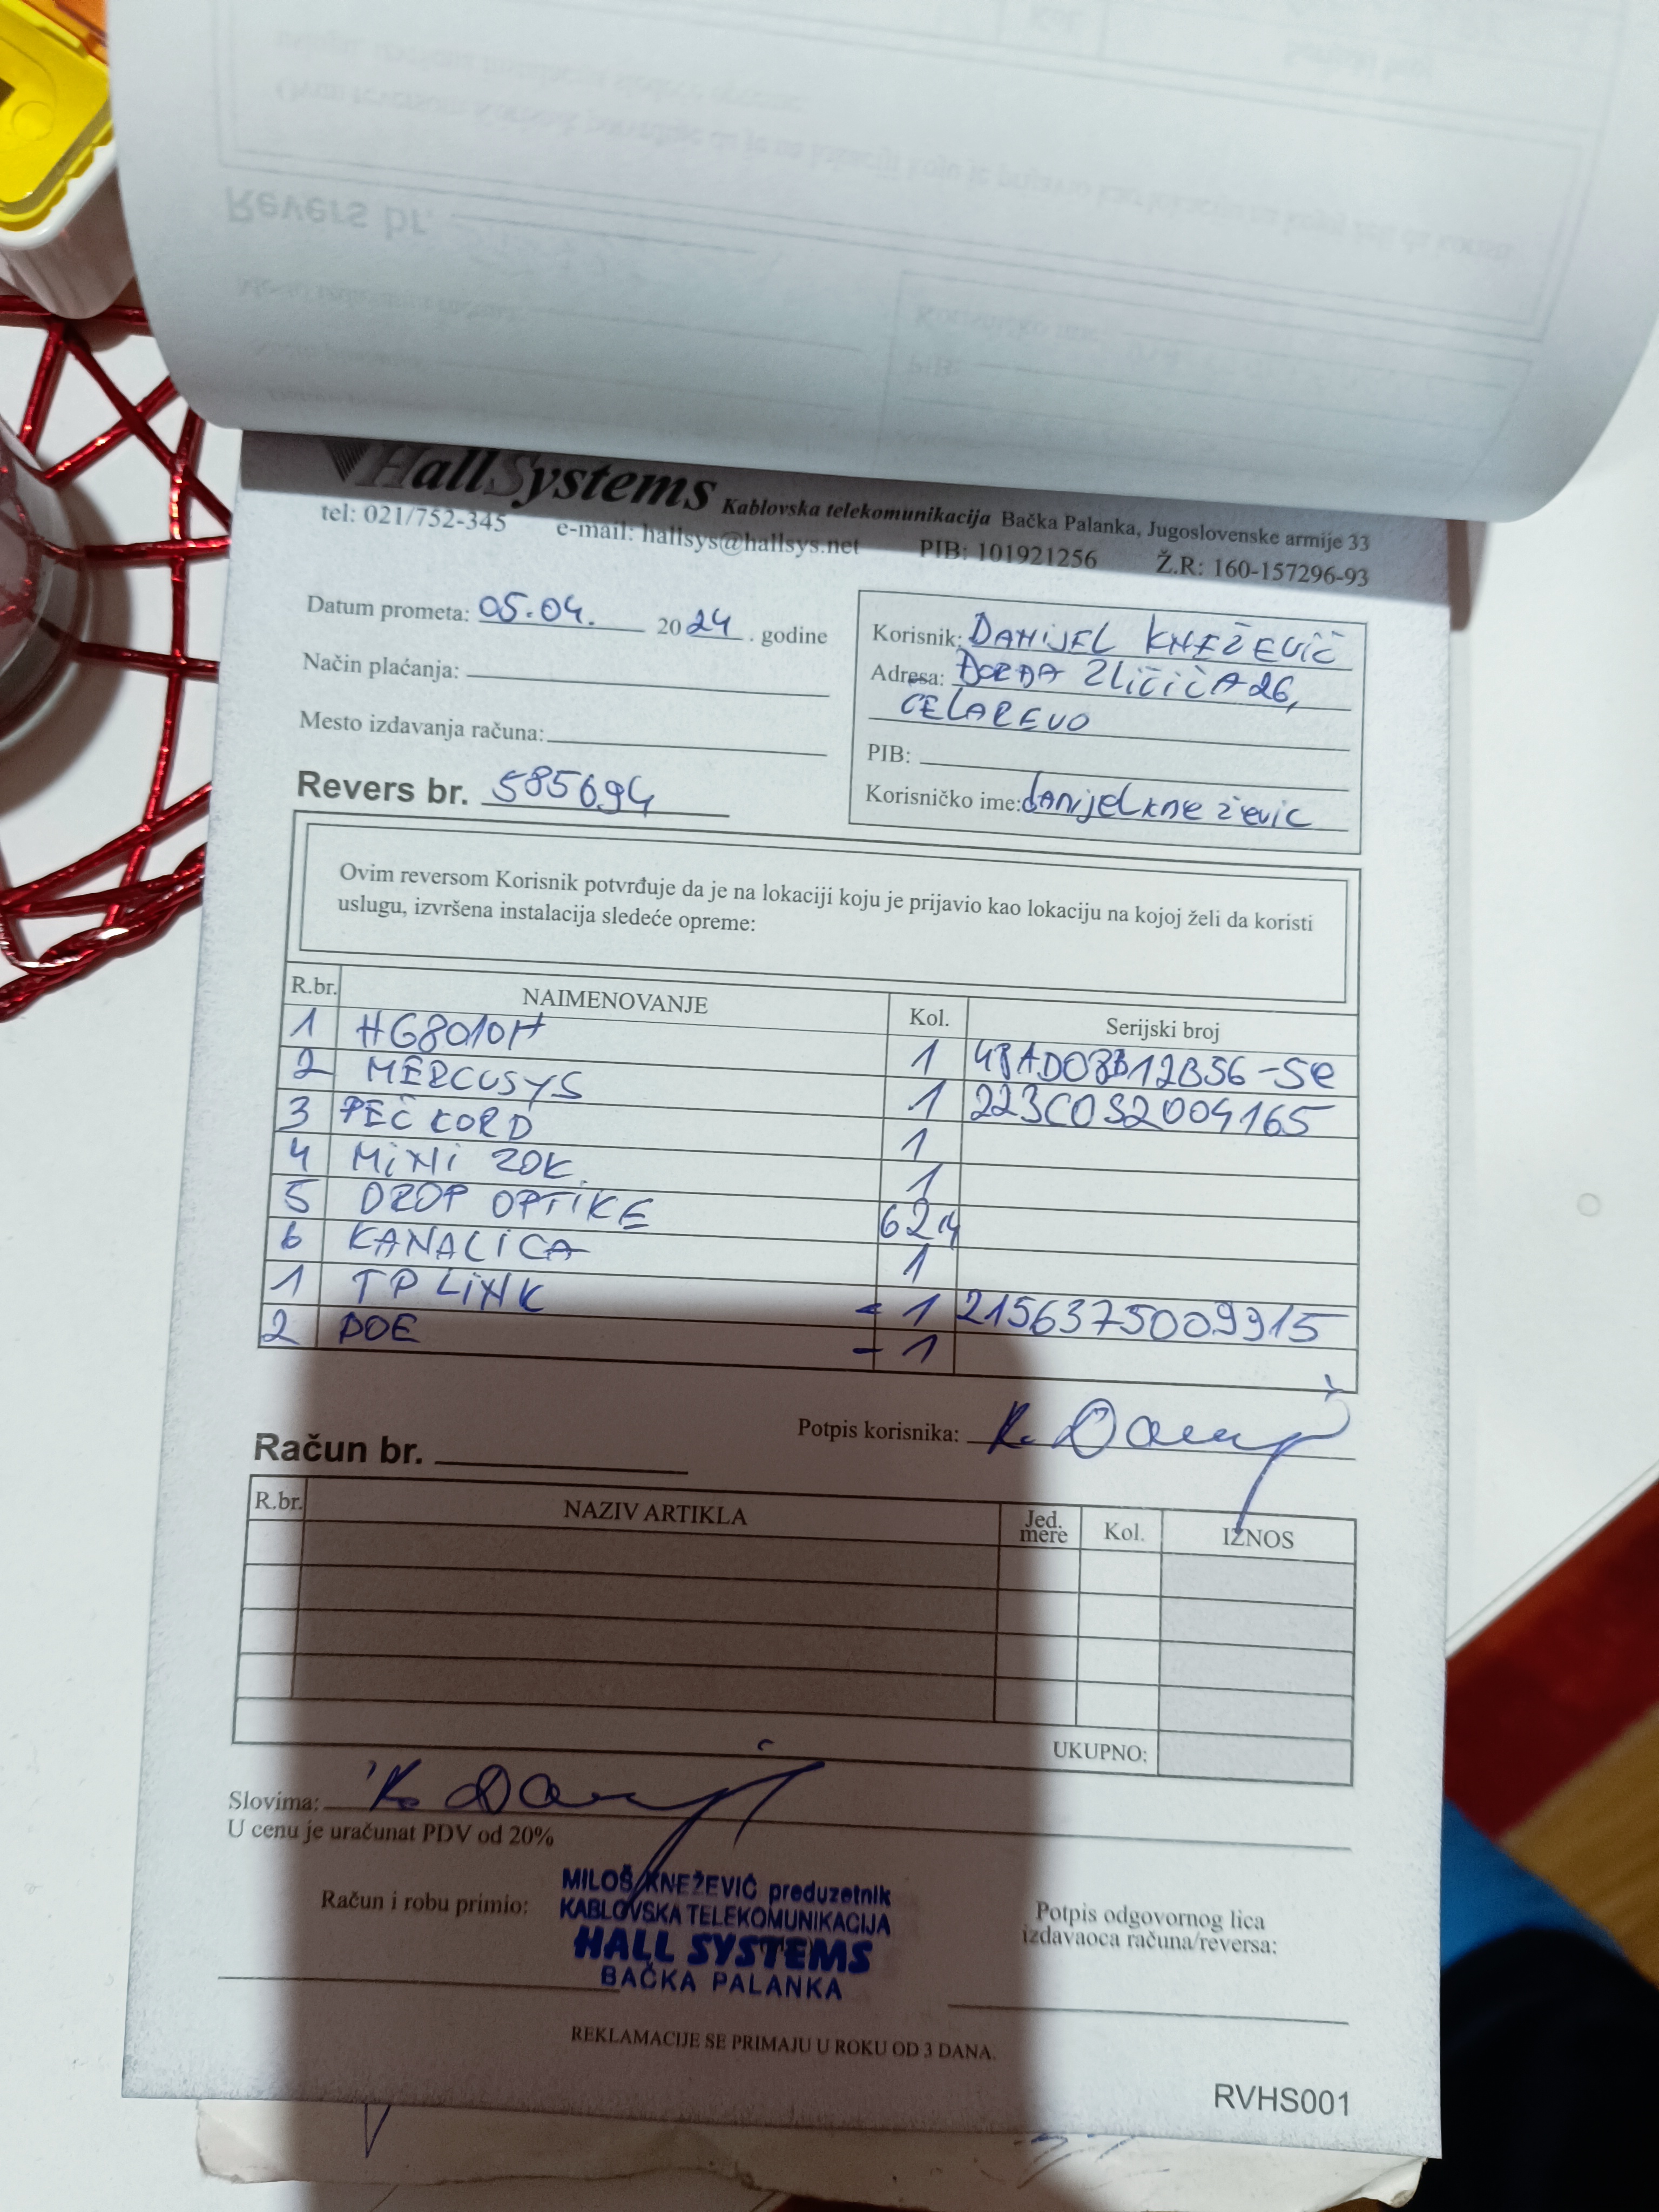 HallSystems Kablovska telekomunikacija Bačka Palanka, Jugoslovenske armije 33
tel: 021/752-345 e-mail: hallsys@hallsys.net PIB: 101921256 Ž.R: 160-157296-93
Datum prometa: 05.04. 2024. godine
Način plaćanja:
Mesto izdavanja računa:
Revers br. 585694
Korisnik: DANIJEL KNEŽEVIĆ
Adresa: ĐORĐA ZLIČIĆA 26,
ČELAREVO
PIB:
Korisničko ime: danijelknezevic
Ovim reversom Korisnik potvrđuje da je na lokaciji koju je prijavio kao lokaciju na kojoj želi da koristi
uslugu, izvršena instalacija sledeće opreme:
R.br. NAIMENOVANJE Kol. Serijski broj
1 HG8010H 1 48AD08B12B56-SC
2 MERCUSYS 1 223C0S2004165
3 PEČ KORD 1
4 MINI ZOK 1
5 DROP OPTIKE 62M
6 KANALICA 1
1 TP LINK - 1 2156375009915
2 POE - 1
Potpis korisnika: K. Danijel
Račun br.
R.br. NAZIV ARTIKLA Jed. mere Kol. IZNOS
UKUPNO:
Slovima: K. Danijel
U cenu je uračunat PDV od 20%
Račun i robu primio:
MILOŠ KNEŽEVIĆ preduzetnik
KABLOVSKA TELEKOMUNIKACIJA
HALL SYSTEMS
BAČKA PALANKA
Potpis odgovornog lica
izdavaoca računa/reversa:
REKLAMACIJE SE PRIMAJU U ROKU OD 3 DANA.
RVHS001